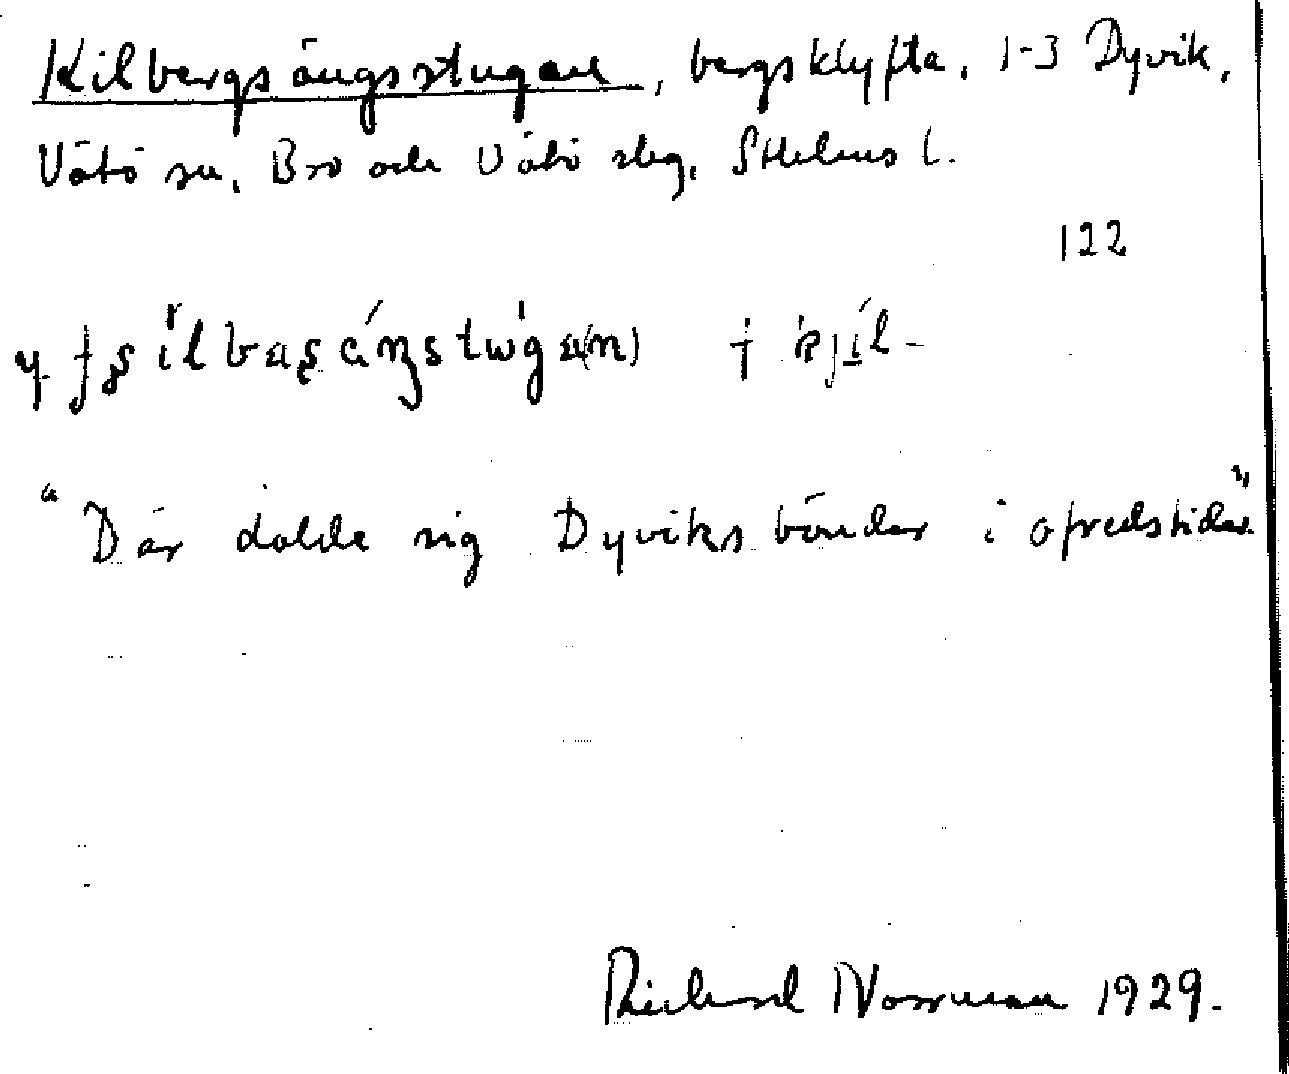 Kilbergsängsstugan, bergsklyfta, 1-3 Dyvik,
Vätö sn, Bro och Vätö slg, Sthlms l.
122
"Där dolde sig Dyviks bönder i ofredstider."
Rickard Norrman 1929.